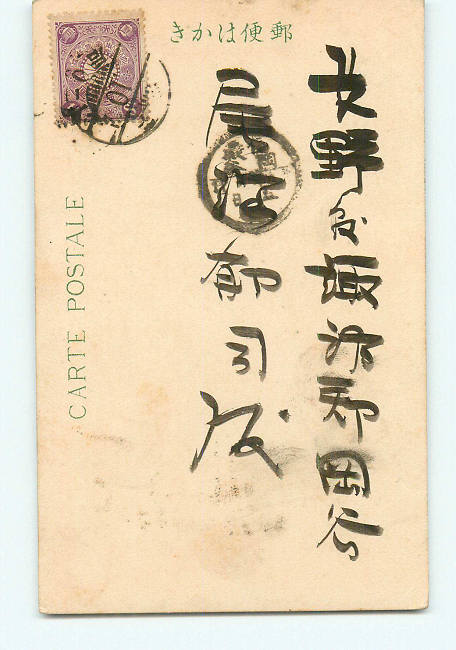 郵便はかき
長野縣諏訪郡岡谷
尾澤郁司殿
CARTE POSTALE